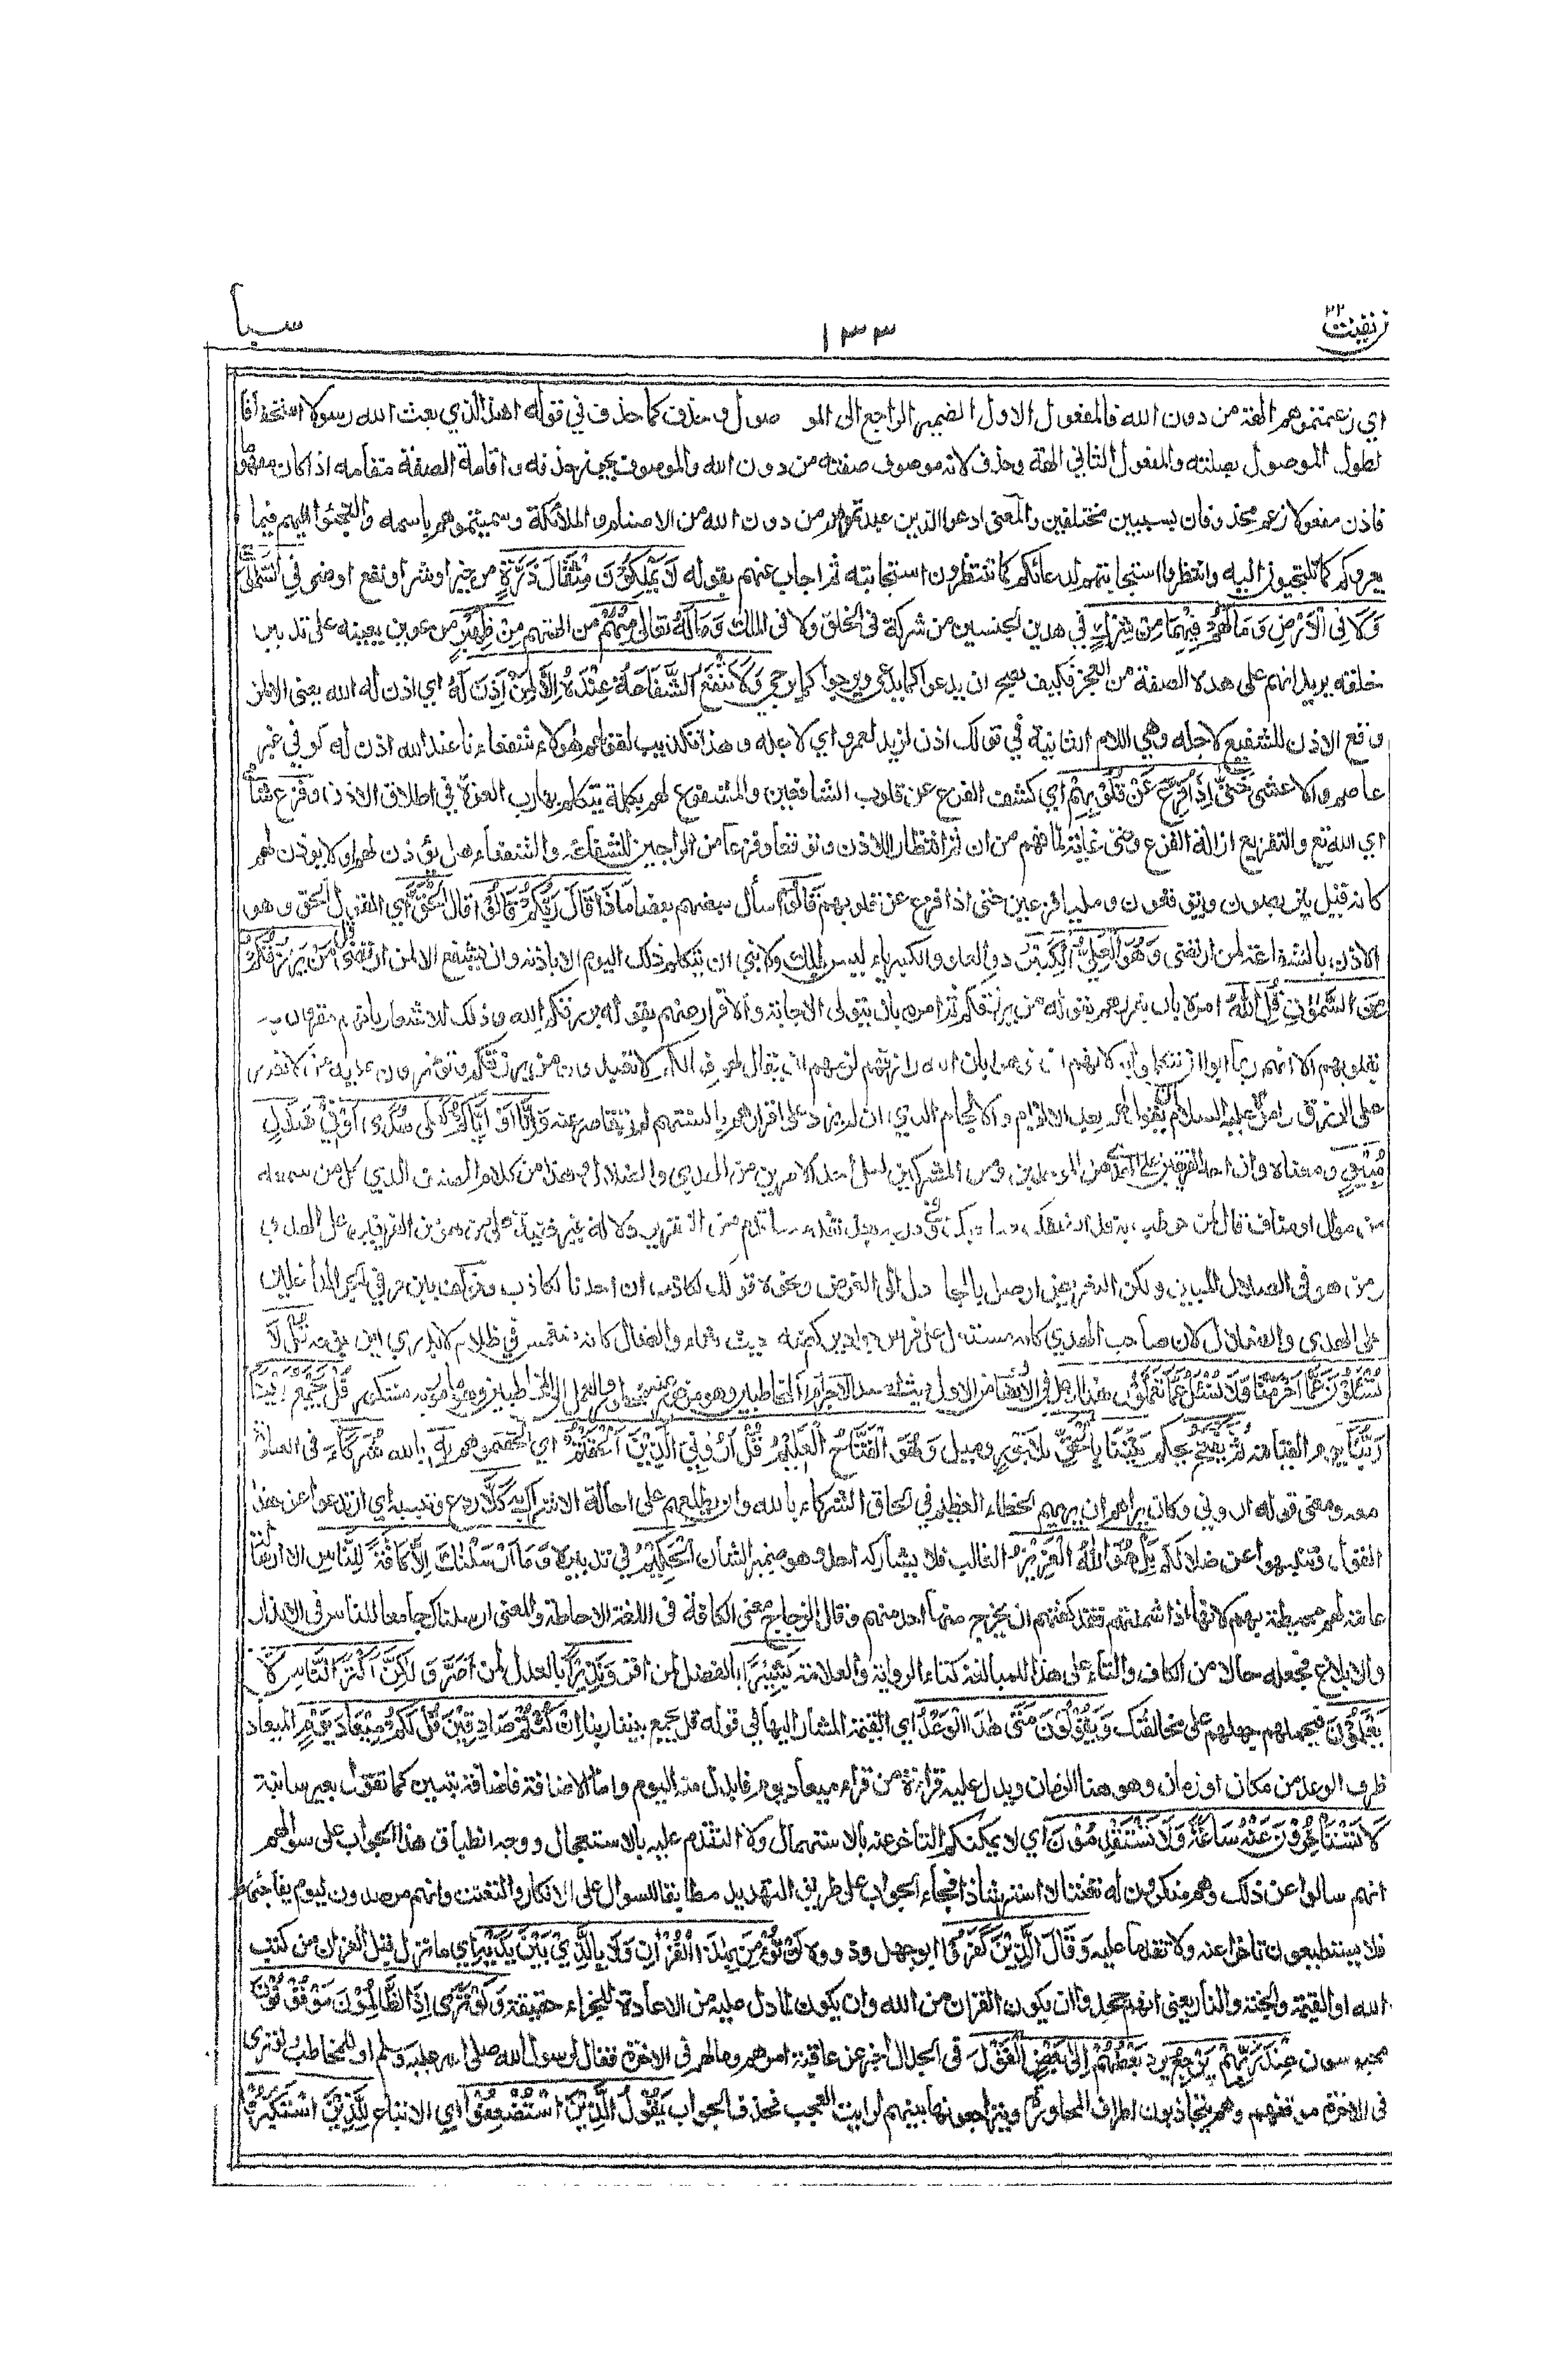 ومن يقنت ٢٢
١٣٣
سبا
اي زعمتموهم الهة من دون الله فالمفعول الاول الضمير الراجع الى الموصول وحذف كما حذف في قوله اهذا الذي بعث الله رسولا استخفافا
لطول الموصول بصلته والمفعول الثاني الهة وحذف لانه موصوف صفته من دون الله والموصوف يجوز حذفه واقامة الصفة مقامه اذا كان مفهوما
فاذن مفعولا زعم محذوفان بسببين مختلفين والمعنى ادعوا الذين عبدتموهم من دون الله من الاصنام والملائكة وسميتموهم باسمه والتجئوا اليهم فيما
يعروكم كما تلتجئون اليه وانتظروا استجابتهم لدعائكم كما تنتظرون استجابته ثم اجاب عنهم بقوله لَا يَمْلِكُوْنَ مِثْقَالَ ذَرَّةٍ من خير او شر او نفع او ضر فِي السَّمٰوٰتِ
وَلَا فِي الْاَرْضِ وَمَا لَهُمْ فِيْهِمَا مِنْ شِرْكٍ في هذين الجنسين من شركة في الخلق ولا في الملك وَمَا لَهٗ تعالى مِنْهُمْ من الهتهم مِنْ ظَهِيْرٍ من عوين يعينه على تدبير
خلقه يريد انهم على هذه الصفة من العجز فكيف يصح ان يدعوا كما يدعى ويرجوا كما يرجى وَلَا تَنْفَعُ الشَّفَاعَةُ عِنْدَهٗ اِلَّا لِمَنْ اَذِنَ لَهٗ اي اذن له الله يعني الا لمن
وقع الاذن للشفيع لاجله وهي اللام الثانية في قولك اذن لزيد لعمرو اي لاجله وهذا تكذيب لقولهم هؤلاء شفعاءنا عند الله اذن له كوفي غير
عاصم والا الاعشى حَتّٰى اِذَا فُزِّعَ عَنْ قُلُوْبِهِمْ اي كشف الفزع عن قلوب الشافعين والمشفوع لهم بكلمة يتكلم بها رب العزة في اطلاق الاذن وفزع شامي
اي الله تع والتفزيع ازالة الفزع وحتى غاية لما فهم من ان ثم انتظارا للاذن وتوقفا وفزعا من الراجين للشفاعة والشفعاء هل يؤذن لهم او لا يؤذن لهم
كانه قيل يتربصون ويتوقفون ومليا فزعين حتى اذا فزع عن قلوبهم قَالُوْا سأل بعضهم بعضا مَاذَا قَالَ رَبُّكُمْ قَالُوا قال الْحَقَّ اي القول الحق وهو
الاذن بالشفاعة لمن ارتضى وَهُوَ الْعَلِيُّ الْكَبِيْرُ ذو العلو والكبرياء ليس لملك ولا نبي ان يتكلم ذلك اليوم الا باذنه وان يشفع الا لمن ارتضى قُلْ مَنْ يَرْزُقُكُمْ
مِنَ السَّمٰوٰتِ قُلِ اللّٰهُ امره بان يقررهم بقوله من يرزقكم ثم امره بان يتولى الاجابة والاقرار عنهم بقوله يرزقكم الله وذلك للاشعار بانهم مقرون
بقلوبهم الا انهم ربما ابوا ان يتكلموا به لانهم ان تفوهوا بان الله رازقهم لزمهم ان يقال لهم فما لكم لا تعبدون من يرزقكم وتؤثرون عليه من لا يقدر
على الرزق وامره عليه السلام ان يقول لهم بعد الالزام والالجام الذي ان لم يزد على اقرارهم بالسنتهم لم يتقاصر عنه وَاِنَّا اَوْ اِيَّاكُمْ لَعَلٰى هُدًى اَوْ فِيْ ضَلٰلٍ
مُبِيْنٍ ومعناه وان احد الفريقين من الموحدين ومن المشركين لعلى احد الامرين من الهدى والضلال وهذا من كلام المنصف الذي كل من سمعه
من موال او مناف قال لمن خوطب به قد انصفك صاحبك وفي درجه بعد تقدمة ما قدم من التقرير دلالة غير خفية على من هو من الفريقين على الهدى
ومن هو في الضلال المبين ولكن التعريض اوصل بالمجادل الى الغرض ونحوه قولك لكاذب ان احدنا لكاذب وخولف بين حرفي الجر الداخلين
على الهدى والضلال لان صاحب الهدى كانه مستعل على فرس جواد يركضه حيث شاء والضال كانه منغمس في ظلام لا يدري اين يتوجه قُلْ لَا
تُسْئَلُوْنَ عَمَّا اَجْرَمْنَا وَلَا نُسْئَلُ عَمَّا تَعْمَلُوْنَ هذا ادخل في الانصاف من الاول حيث اسند الاجرام الى المخاطبين وهو مزجور عنه والعمل الى المخاطبين وهو مامور به مشكور قُلْ يَجْمَعُ بَيْنَنَا
رَبُّنَا يوم القيامة ثُمَّ يَفْتَحُ يحكم بَيْنَنَا بِالْحَقِّ بلا جور وميل وَهُوَ الْفَتَّاحُ الْعَلِيْمُ قُلْ اَرُوْنِيَ الَّذِيْنَ اَلْحَقْتُمْ اي الحقتموهم بِهٖ بالله شُرَكَآءَ في العبادة
معه ومعنى قوله اروني وكان يراهم ان يريهم الخطاء العظيم في الحاق الشركاء بالله وان يطلعهم على احالة الاشراك به كَلَّا ردع وتنبيه اي ارتدعوا عن هذا
القول وتنبهوا عن ضلالكم بَلْ هُوَ اللّٰهُ الْعَزِيْزُ الغالب فلا يشاركه احد وهو ضمير الشان الْحَكِيْمُ في تدبيره وَمَا اَرْسَلْنٰكَ اِلَّا كَافَّةً لِلنَّاسِ الا ارسالة
عامة لهم محيطة بهم لانها اذا شملتهم فقد كفتهم ان يخرج منها احد منهم وقال الزجاج معنى الكافة في اللغة الاحاطة والمعنى ارسلناك جامعا للناس في الانذار
والابلاغ فجعله حالا من الكاف والتاء على هذا للمبالغة كتاء الرواية والعلامة بَشِيْرًا بالفضل لمن اقر وَنَذِيْرًا بالعدل لمن اصر وَلٰكِنَّ اَكْثَرَ النَّاسِ لَا
يَعْلَمُوْنَ فيحملهم جهلهم على مخالفتك وَيَقُوْلُوْنَ مَتٰى هٰذَا الْوَعْدُ اي القيمة المشار اليها في قوله قل يجمع بيننا ربنا اِنْ كُنْتُمْ صَادِقِيْنَ قُلْ لَكُمْ مِيْعَادُ يَوْمٍ الميعاد
ظرف الوعد من مكان او زمان وهو هنا الزمان ويدل عليه قراءة من قراء ميعاد يوم فابدل منه اليوم واما الاضافة فاضافة تبيين كما تقول بعير سانية
لَا تَسْتَاْخِرُوْنَ عَنْهُ سَاعَةً وَلَا تَسْتَقْدِمُوْنَ اي لا يمكنكم التاخر عنه بالاستمهال ولا التقدم عليه بالاستعجال ووجه انطباق هذا الجواب على سوالهم
انهم سالوا عن ذلك وهم منكرون له تعنتا لا استرشادا فجاء الجواب على طريق التهديد مطابقا للسوال على الانكار والتعنت وانهم مرصدون ليوم يفاجئهم
فلا يستطيعون تاخرا عنه ولا تقدما عليه وَقَالَ الَّذِيْنَ كَفَرُوْا ابو جهل وذووه لَنْ نُؤْمِنَ بِهٰذَا الْقُرْاٰنِ وَلَا بِالَّذِيْ بَيْنَ يَدَيْهِ اي ما نزل قبل القران من كتب
الله او القيمة والجنة والنار يعني انهم جحدوا ان يكون القران من الله وان يكون لما دل عليه من الاعادة للجزاء حقيقة وَلَوْ تَرٰى اِذِ الظَّالِمُوْنَ مَوْقُوْفُوْنَ
محبوسون عِنْدَ رَبِّهِمْ يَرْجِعُ يرد بَعْضُهُمْ اِلٰى بَعْضٍ الْقَوْلَ في الجدال اخبر عن عاقبة امرهم ومالهم في الاخرة فقال لرسول الله صلى الله عليه وسلم او للمخاطب لو ترى
في الاخرة موقفهم وهم يتجاذبون اطراف المحاورة ويتراجعونها بينهم لرايت العجب فحذف الجواب يَقُوْلُ الَّذِيْنَ اسْتُضْعِفُوْا اي الاتباع لِلَّذِيْنَ اسْتَكْبَرُوْا